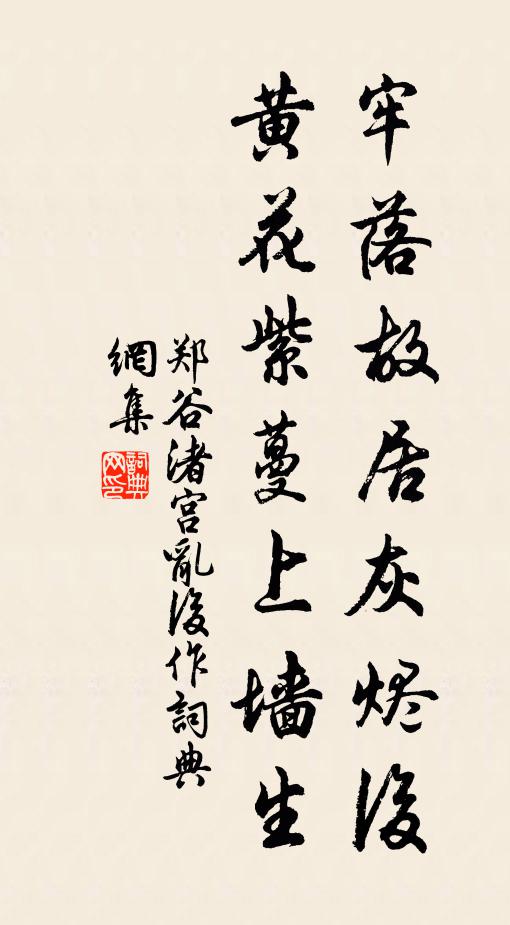 牢落故居灰烬後
黄花紫蔓上墙生
郑谷渚宫亂後作詞典
網集
詞典網印